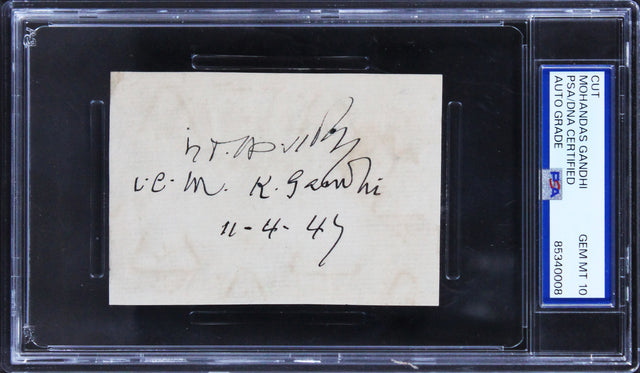 i.e. M. K. Gandhi
11-4-47
CUT
MOHANDAS GANDHI
PSA/DNA CERTIFIED
AUTO GRADE
GEM MT 10
PSA
85340008